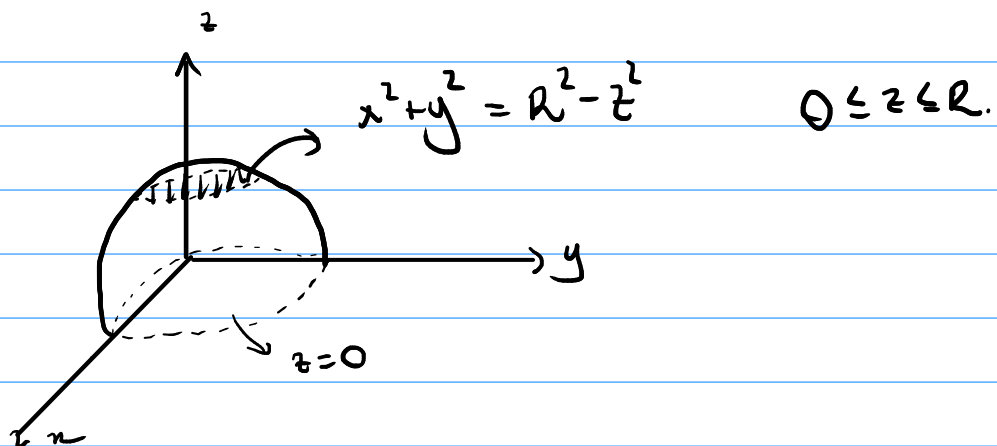 z
x²+y² = R²-z² 0 ≤ z ≤ R.
y
z=0
x